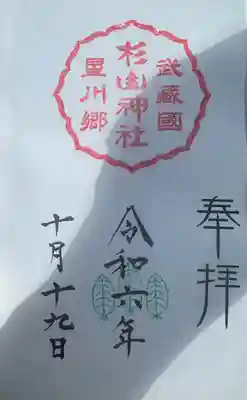 奉拝
武蔵國
杉山神社
星川郷
令和六年
十月十九日